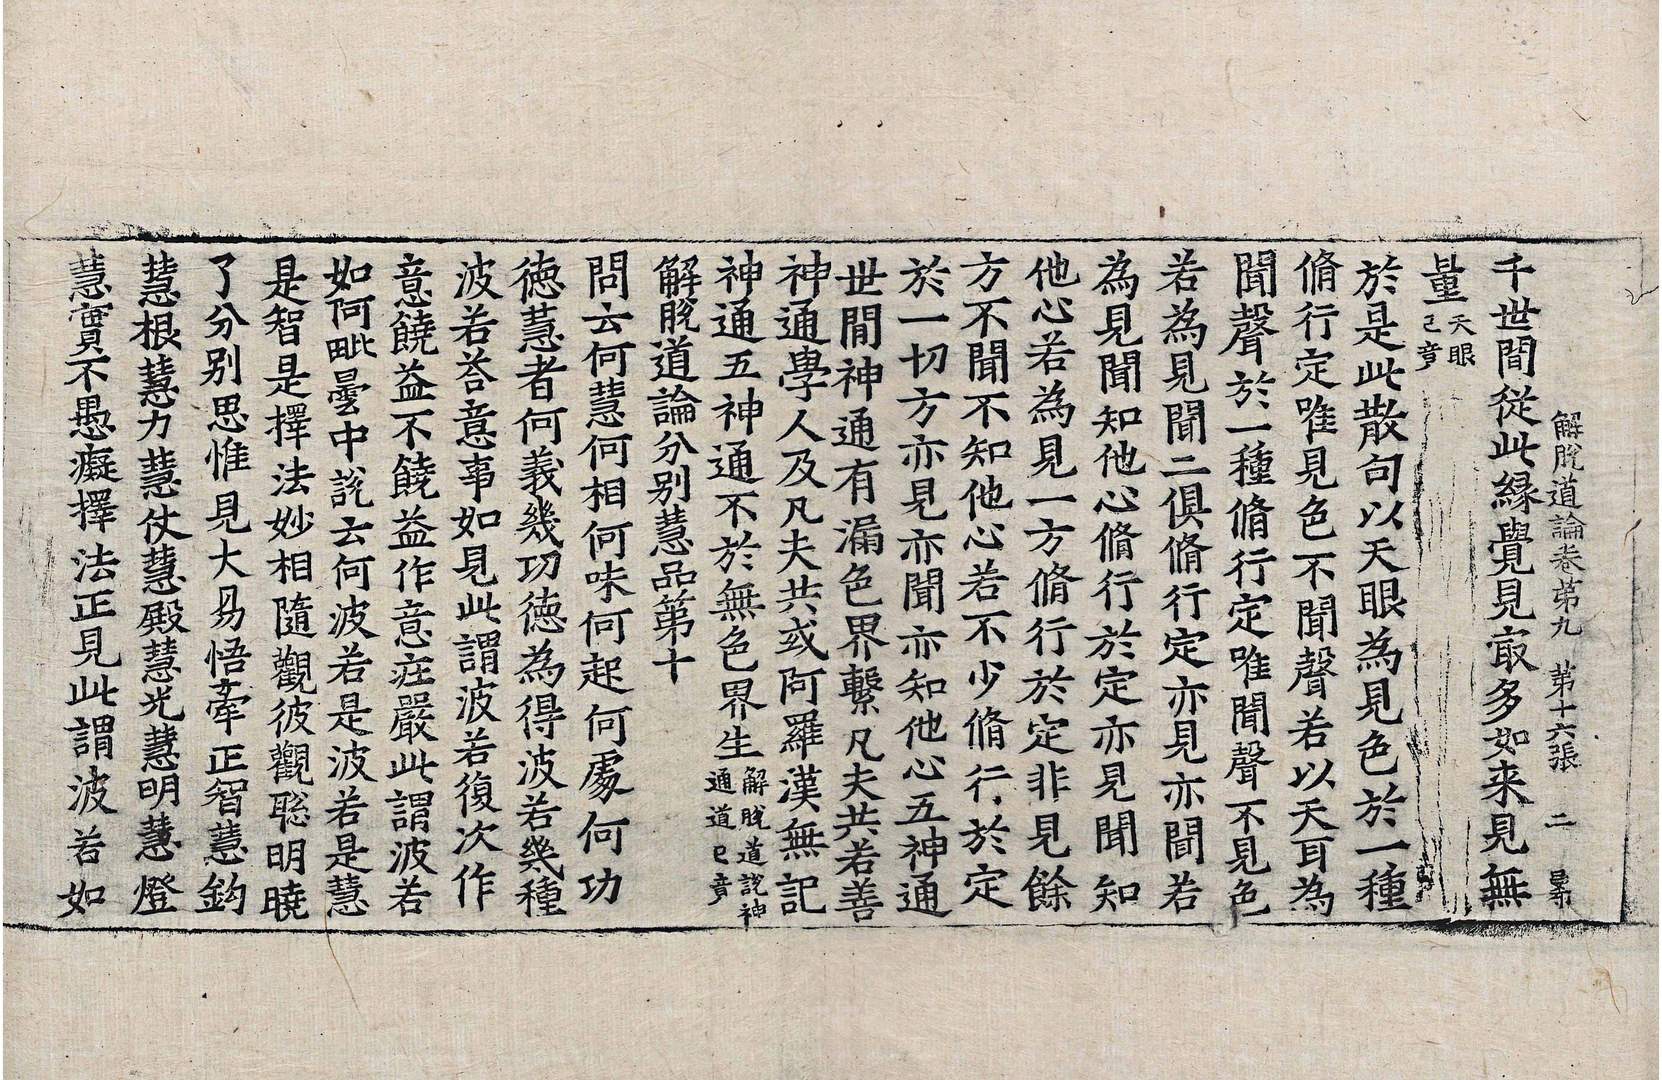 解脫道論卷第九 第十六張 二 累
千世間從此縁覺見㝡多如来見無
量天眼已竟
於是此散句以天眼為見色於一種
脩行定唯見色不聞聲若以天耳為
聞聲於一種脩行定唯聞聲不見色
若為見聞二俱脩行定亦見亦聞若
為見聞知他心脩行於定亦見聞知
他心若為見一方脩行於定非見餘
方不聞不知他心若不少脩行於定
於一切方亦見亦聞亦知他心五神通
世間神通有漏色界繫凡夫共若善
神通學人及凡夫共或阿羅漢無記
神通五神通不於無色界生解脫道說神通道已竟
解脫道論分別慧品第十
問云何慧何相何味何起何處何功
德慧者何義幾功德為得波若幾種
波若荅意事如見此謂波若復次作
意饒益不饒益作意莊嚴此謂波若
如何毗曇中說云何波若是波若是慧
是智是擇法妙相隨觀彼觀聡明曉
了分別思惟見大易悟牽正智慧鈎
慧根慧力慧仗慧殿慧光慧明慧燈
慧實不愚癡擇法正見此謂波若如